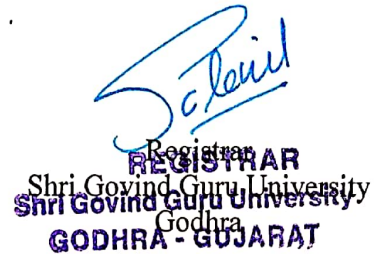 Registrar
REGISTRAR
Shri Govind Guru University
Shri Govind Guru University
Godhra
GODHRA - GUJARAT